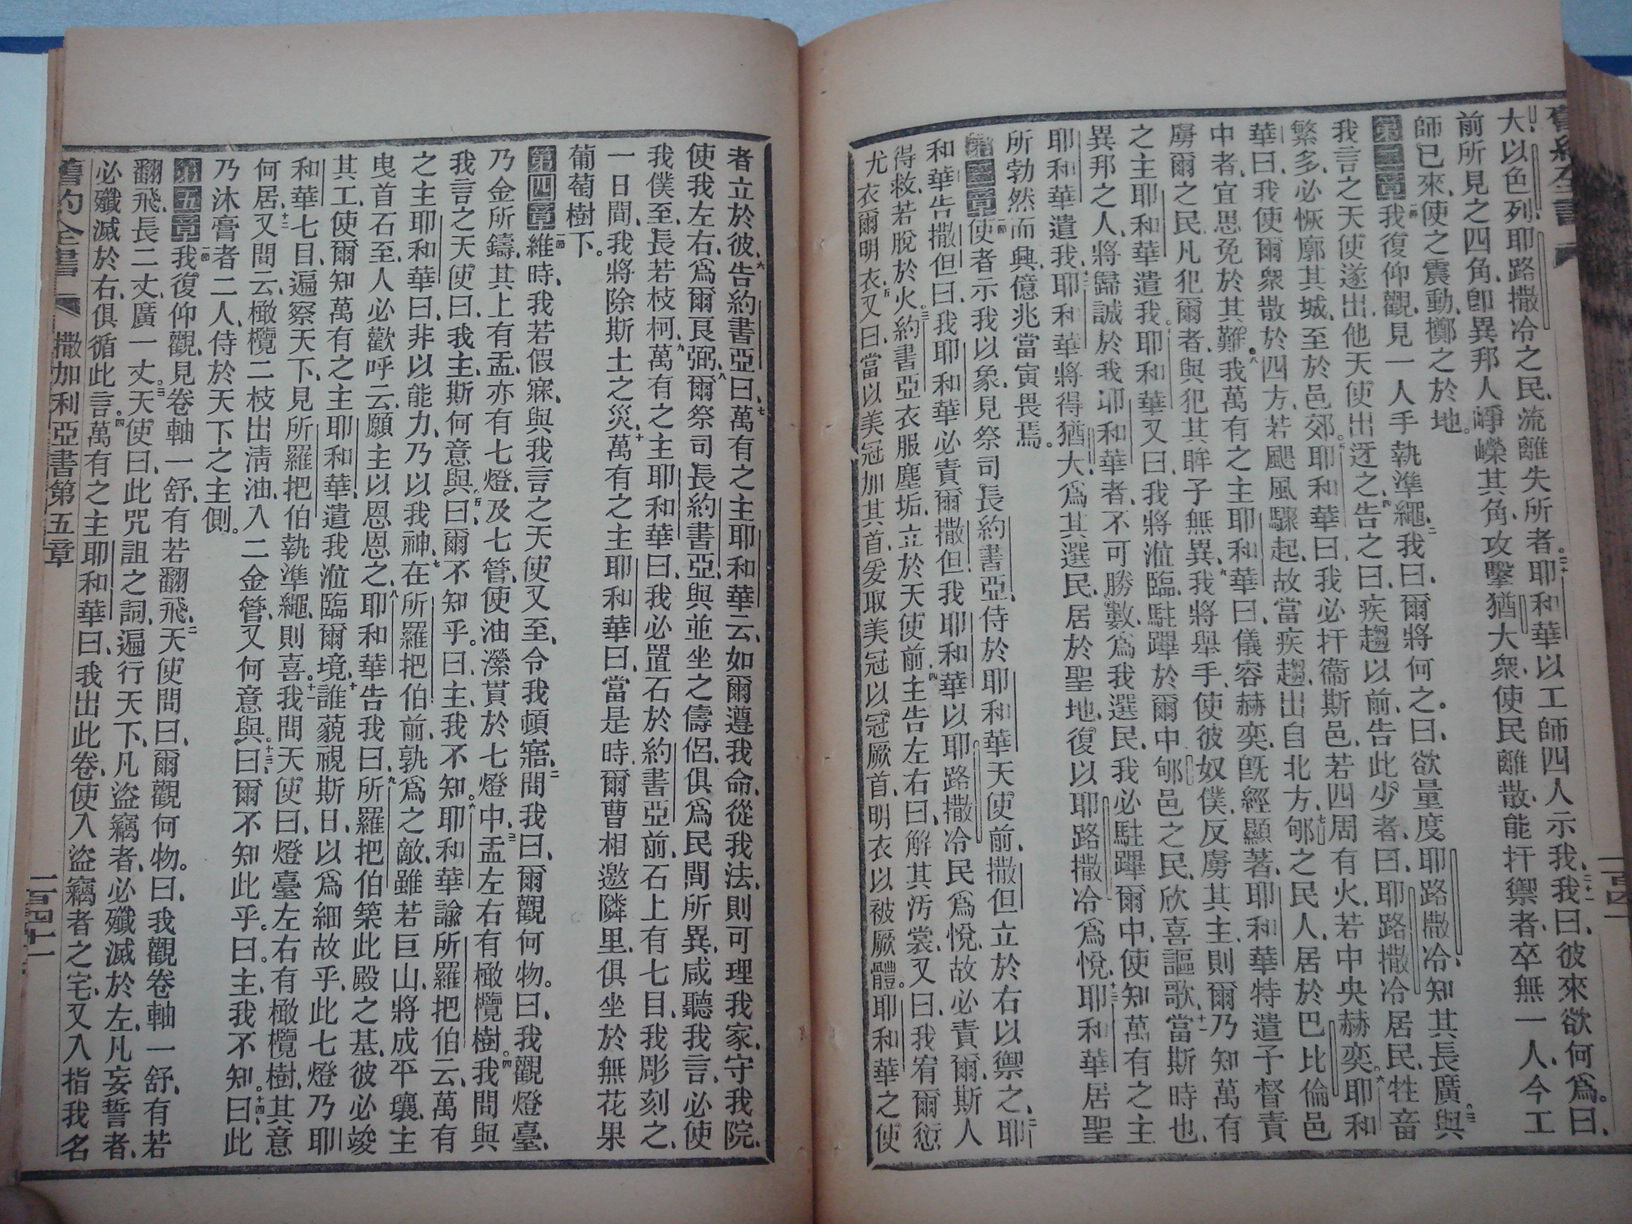 舊約全書
大以色列耶路撒冷之民、流離失所者。二十耶和華以工師四人示我、二十一我曰、彼來欲何爲。曰、
前所見之四角、卽異邦人崢嶸其角、攻擊猶大衆、使民離散、能扞禦者、卒無一人、今工
師已來、使之震動、擲之於地。
第二章一節我復仰觀、見一人手執準繩、二我曰、爾將何之。曰、欲量度耶路撒冷、知其長廣、三與
我言之天使遂出、他天使出迓之、四告之曰、疾趨以前、告此少者、曰、耶路撒冷居民牲畜
繁多、必恢廓其城、至於邑郊。五耶和華曰、我必扞衞斯邑、若四周有火、若中央赫奕、六耶和
華曰、我使爾衆散於四方、若颶風驟起、故當疾趨、出自北方、七郇之民人、居於巴比倫邑
中者、宜思免於其難。八我萬有之主耶和華曰、儀容赫奕、旣經顯著、耶和華特遣予督責
虜爾之民、凡犯爾者、與犯其眸子無異、九我將舉手、使彼奴僕反虜其主、則爾乃知萬有
之主耶和華遣我。十耶和華又曰、我將涖臨、駐蹕於爾中、郇邑之民、欣喜謳歌、十一當斯時也、
異邦之人將歸誠於我耶和華者、不可勝數、爲我選民、我必駐蹕爾中、使知萬有之主
耶和華遣我、十二耶和華將得猶大、爲其選民、居於聖地、復以耶路撒冷爲悅、十三耶和華居聖
所、勃然而興、億兆當寅畏焉。
第三章一節使者示我以象、見祭司長約書亞、侍於耶和華天使前、撒但立於右以禦之、二耶
和華告撒但曰、我耶和華必責爾撒但、我耶和華以耶路撒冷民爲悅、故必責爾、斯人
得救、若脫於火、三約書亞衣服塵垢、立於天使前、四主告左右曰、解其汚裳、又曰、我宥爾愆
尤、衣爾明衣、五又曰、當以美冠加其首、爰取美冠、以冠厥首、明衣以被厥體。耶和華之使
者立於彼、六告約書亞曰、七萬有之主耶和華云、如爾遵我命、從我法、則可理我家、守我院、
使我左右、爲爾良弼、八爾祭司長約書亞、與並坐之儔侶、俱爲民間所異、咸聽我言、必使
我僕至、長若枝柯、九萬有之主耶和華曰、我必置石於約書亞前、石上有七目、我彫刻之、
一日間、我將除斯土之災、十萬有之主耶和華曰、當是時、爾曹相邀隣里、俱坐於無花果
葡萄樹下。
第四章一節維時、我若假寐、與我言之天使又至、令我頓寤、二問我曰、爾觀何物。曰、我觀燈臺、
乃金所鑄、其上有盂、亦有七燈、及七管、使油瀠貫於七燈中、三盂左右有橄欖樹。四我問與
我言之天使曰、我主、斯何意與。五曰、爾不知乎。曰、主、我不知。六耶和華諭所羅把伯云、萬有
之主耶和華曰、非以能力、乃以我神、七在所羅把伯前、孰爲之敵、雖若巨山、將成平壤、主
曳首石至、人必歡呼云、願主以恩恩之、八耶和華告我曰、九所羅把伯築此殿之基、彼必竣
其工、使爾知萬有之主耶和華、遣我涖臨爾境、十誰藐視斯日、以爲細故乎、此七燈乃耶
和華七目、遍察天下、見所羅把伯執準繩則喜、十一我問天使曰、燈臺左右有橄欖樹、其意
何居、十二又問云、橄欖二枝、出淸油、入二金管、又何意與。十三曰、爾不知此乎。曰、主、我不知、十四曰、此
乃沐膏者二人、侍於天下之主側。
第五章一節我復仰觀、見卷軸一舒、有若翻飛、二天使問曰、爾觀何物。曰、我觀卷軸一舒、有若
翻飛、長二丈、廣一丈、三天使曰、此咒詛之詞、遍行天下、凡盜竊者、必殲滅於左、凡妄誓者、
必殲滅於右、俱循此言、四萬有之主耶和華曰、我出此卷、使入盜竊者之宅、又入指我名
舊約全書 撒加利亞書第五章 二百四十二